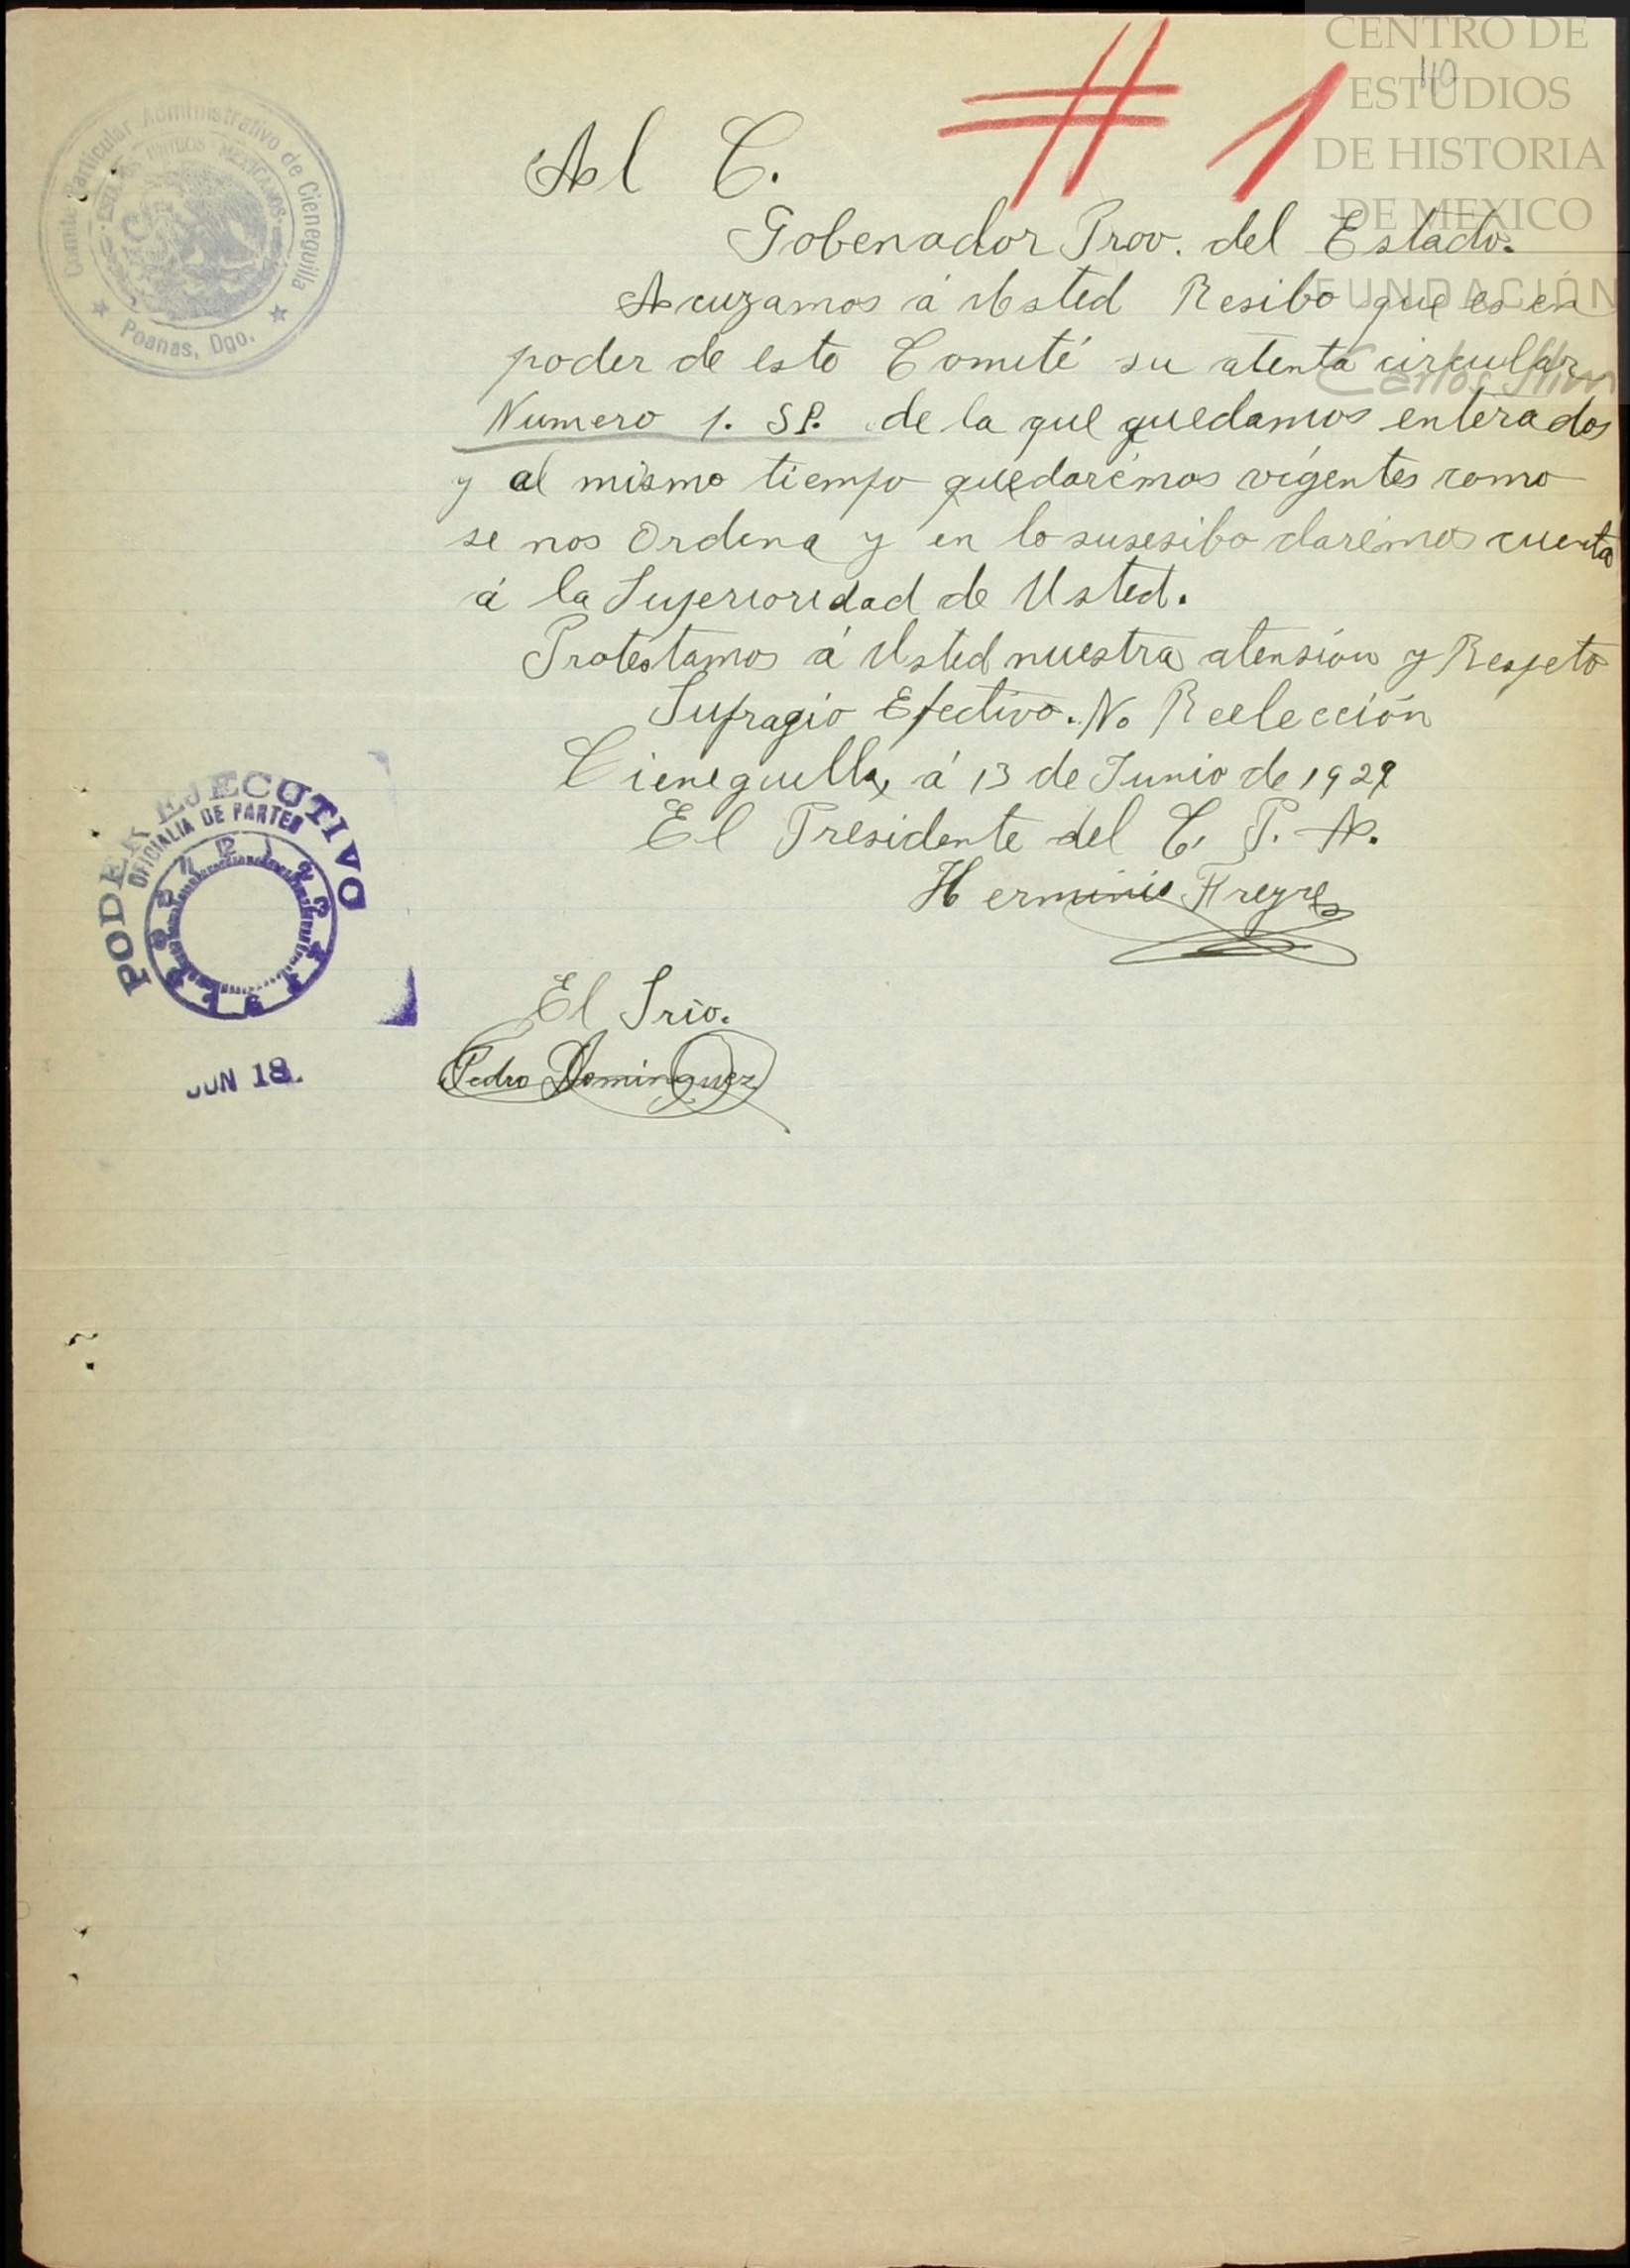 CENTRO DE
ESTUDIOS
DE HISTORIA
DE MEXICO
FUNDACIÓN
Carlos Slim
110
# 1
Comité Particular Administrativo de Cieneguilla
ESTADOS UNIDOS MEXICANOS
Poanas, Dgo.
Al C.
Gobenador Prov. del Estado.
Acuzamos á Usted Resibo que es en
poder de este Comité su atenta circular
Numero 1. SP. de la que quedamos enterados
y al mismo tiempo quedarémos vigentes como
se nos Ordena y en lo susesibo darémos cuenta
á la Superioridad de Usted.
Protestamos á Usted nuestra atensión y Respeto
Sufragio Efectivo. No Reelección
Cieneguilla, á 13 de Junio de 1929
El Presidente del C. P. A.
Herminio Freyre
El Srio.
Pedro Dominguez
PODER EJECUTIVO
OFICIALIA DE PARTES
JUN 18